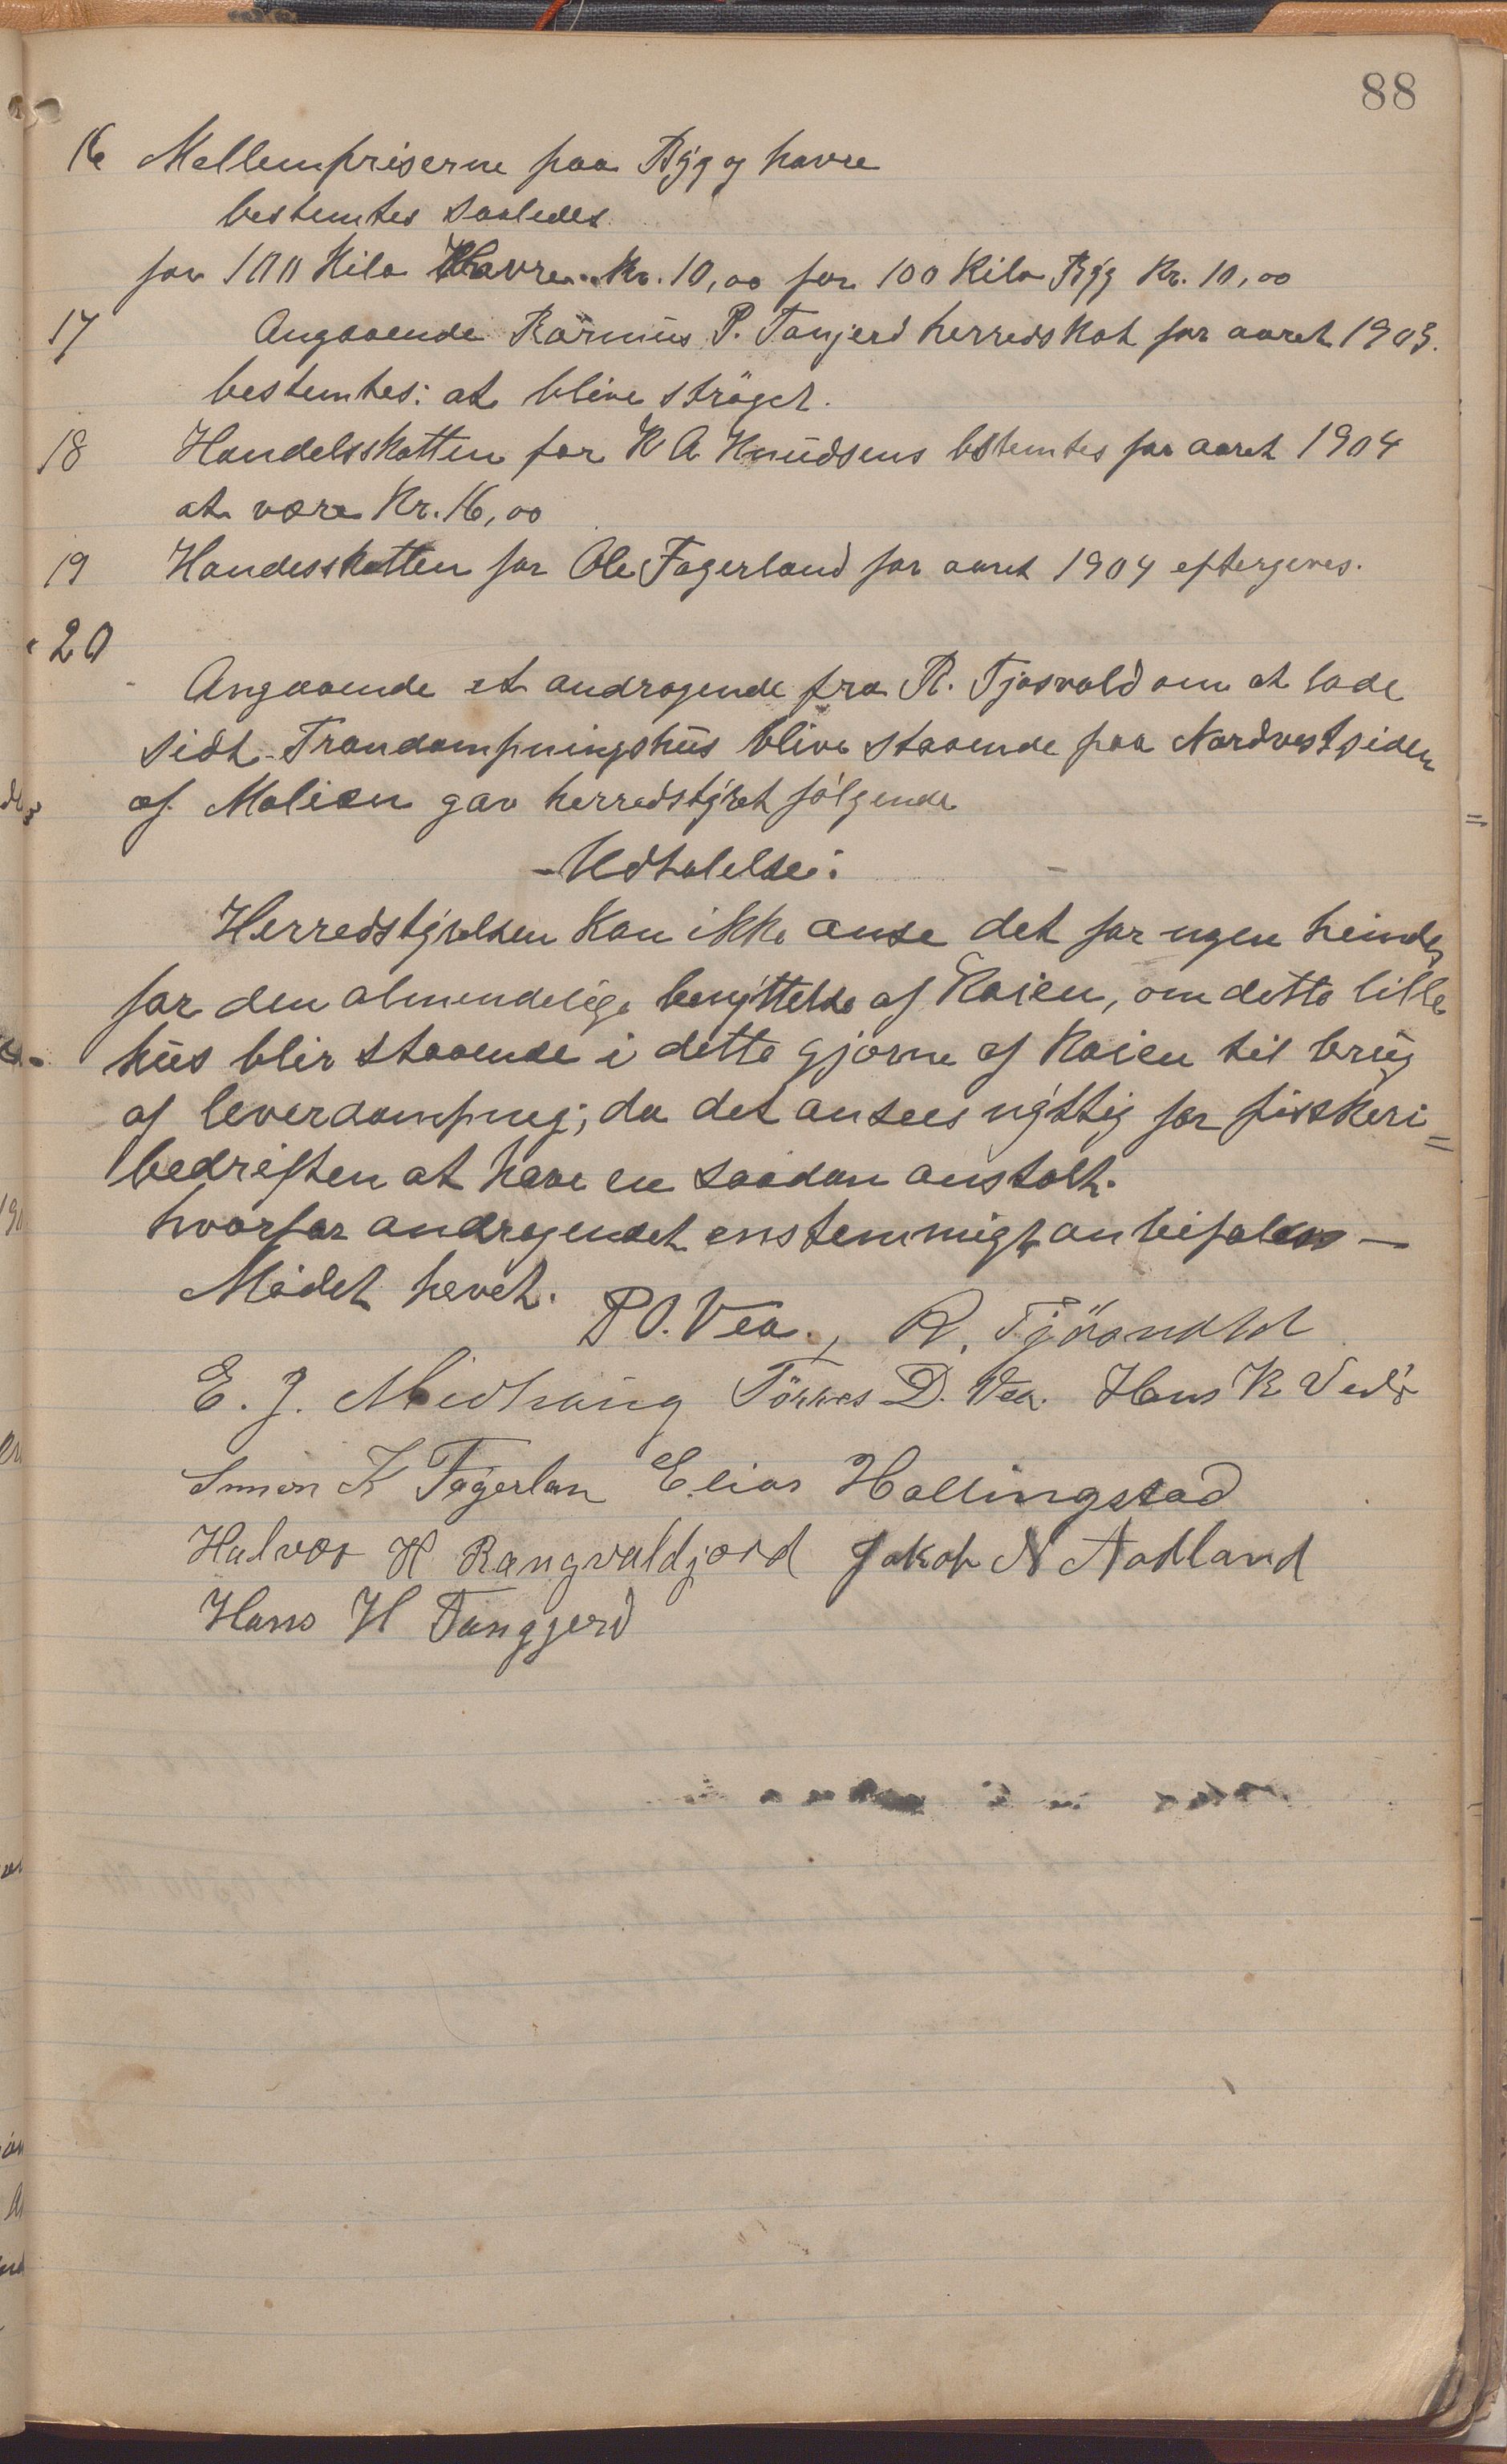 88
16 Mellempriserne paa Byg og havre
bestemtes saaledes
for 100 Kilo Havre Kr. 10,00 for 100 Kilo Byg Kr. 10,00
17 Angaaende Rasmus P. Tanjerd herredskat for aaret 1903.
bestemtes: at blive ströget.
18 Handelsskatten for K A Knudsens bstemtes for aaret 1904
at være Kr. 16,00
19 Handesskatten for Ole Fagerland for aaret 1904 eftergives.
20
Angaaende et andragende fra R. Tjosvold om at lade
sidt Trandampningshus blive staaende paa Nordvestsiden
af Moloen gav herredstyret følgende
Udtalelse:
Herredstyrelsen kan ikke anse det for ngen heinder
for den almendelige benyttelse af Kaien, om dette lille
hus blir staaende i dette hjørne af Kaien til brug
af leverdampnig; da det ansees nyttig for fisskeri=
bedriften at have en saadan anstalt.
hvorfor andragendet enstemmigt anbefales —
Mødet hevet. P O. Vea., R. Tjösvold
E. J. Midhaug Törres D. Vea. Hans K Vedö
Simon K Fagerlan Elias Hallingstad
Halvor H Rangvaldjord Jakob N Aadland
Hans H Tanggjerd